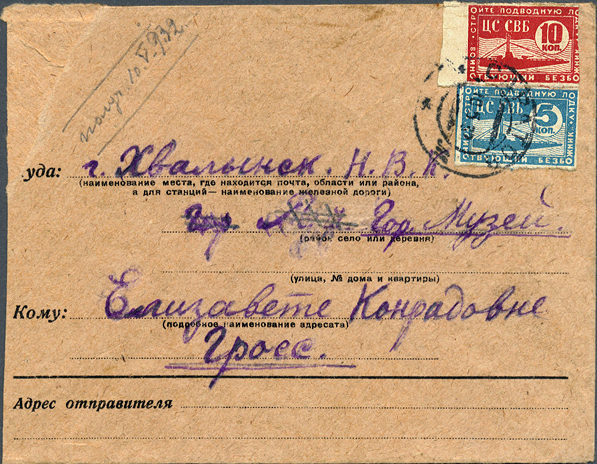 получ 10.V.932
СТРОЙТЕ ПОДВОДНУЮ
ЦС СВБ 10 КОП.
СТРОЙТЕ ПОДВОДНУЮ ЛОДКУ
ЦС СВБ 5 КОП.
уда: г. Хвалынск. Н.В.К.
(наименование места, где находится почта, области или района,
а для станций—наименование железной дороги)
Гор. Музей
(район село или деревня)
(улица, № дома и квартиры)
Кому: Елизавете Конрадовне
(подробное наименование адресата)
Гросс.
Адрес отправителя